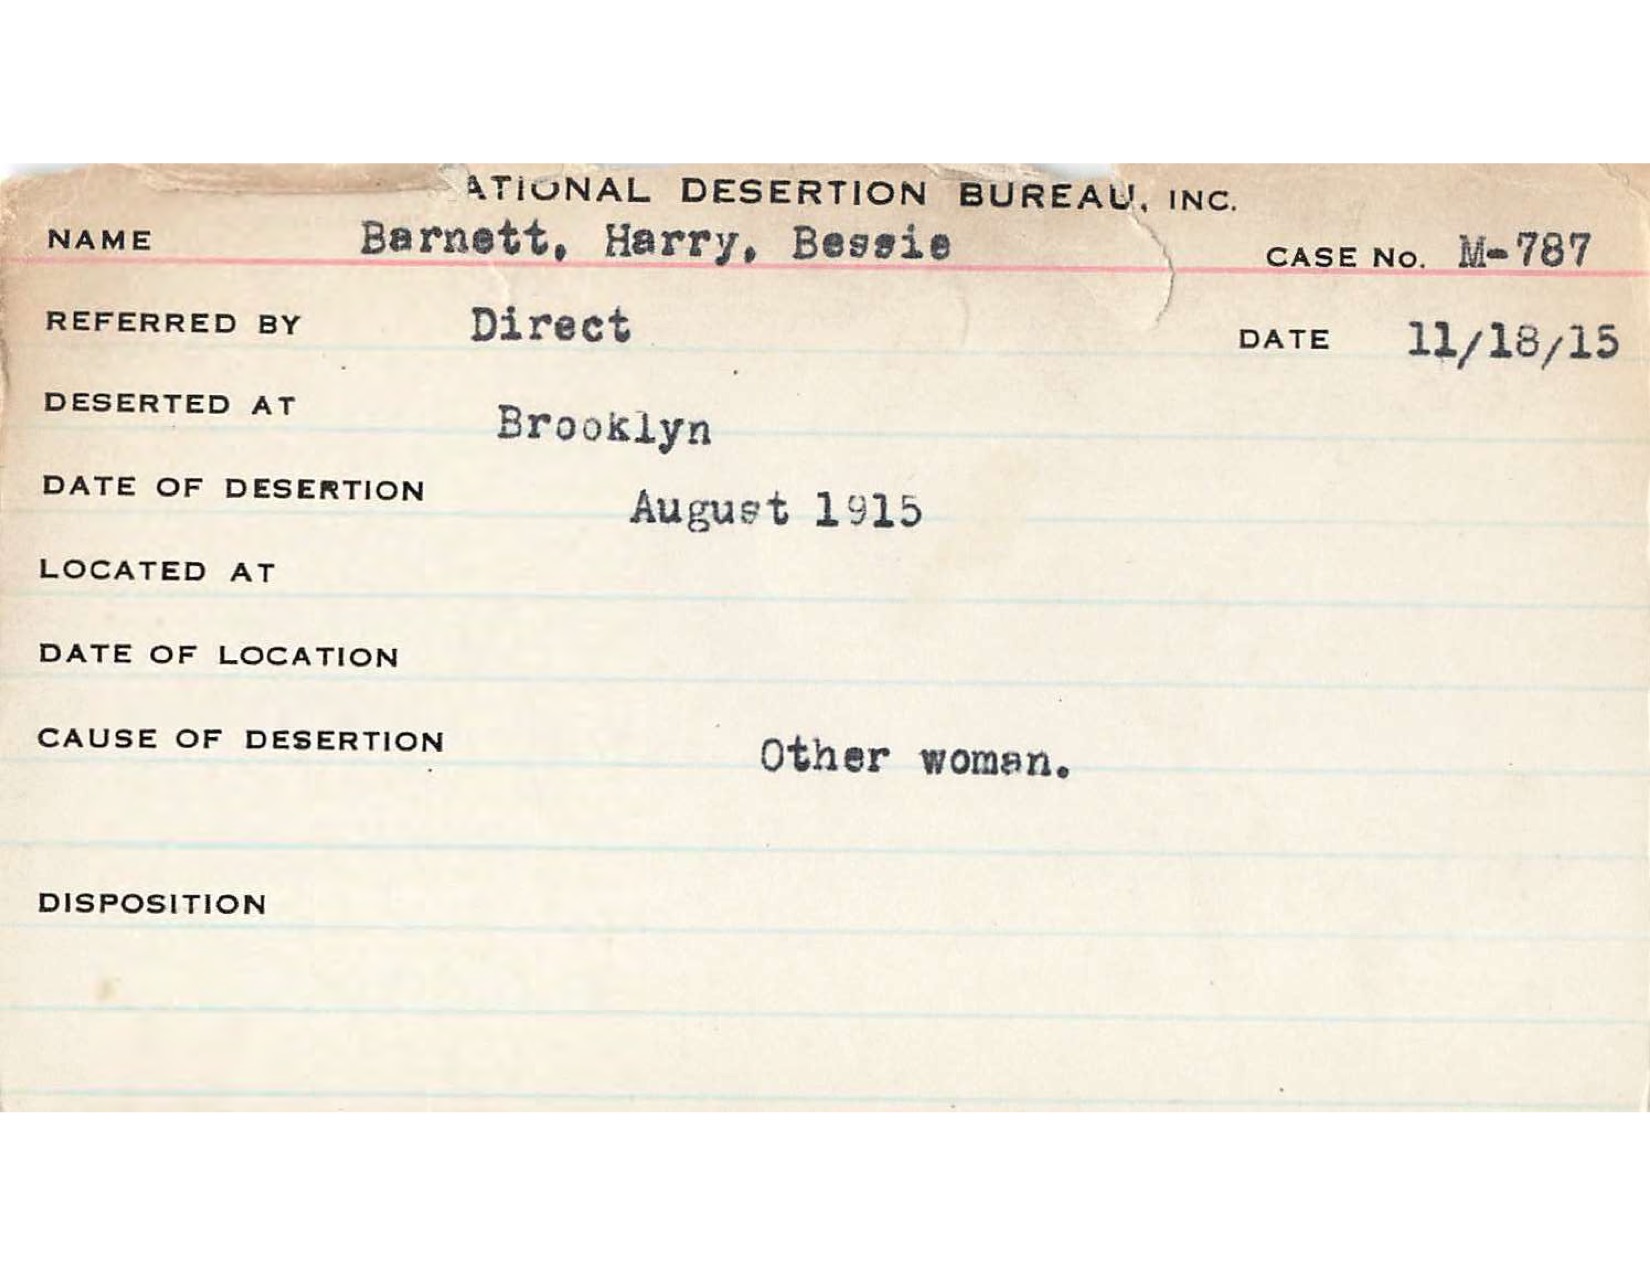 ATIONAL DESERTION BUREAU, INC.
NAME Barnett, Harry, Bessie CASE No. M-787
REFERRED BY Direct DATE 11/18/15
DESERTED AT Brooklyn
DATE OF DESERTION August 1915
LOCATED AT
DATE OF LOCATION
CAUSE OF DESERTION Other woman.
DISPOSITION